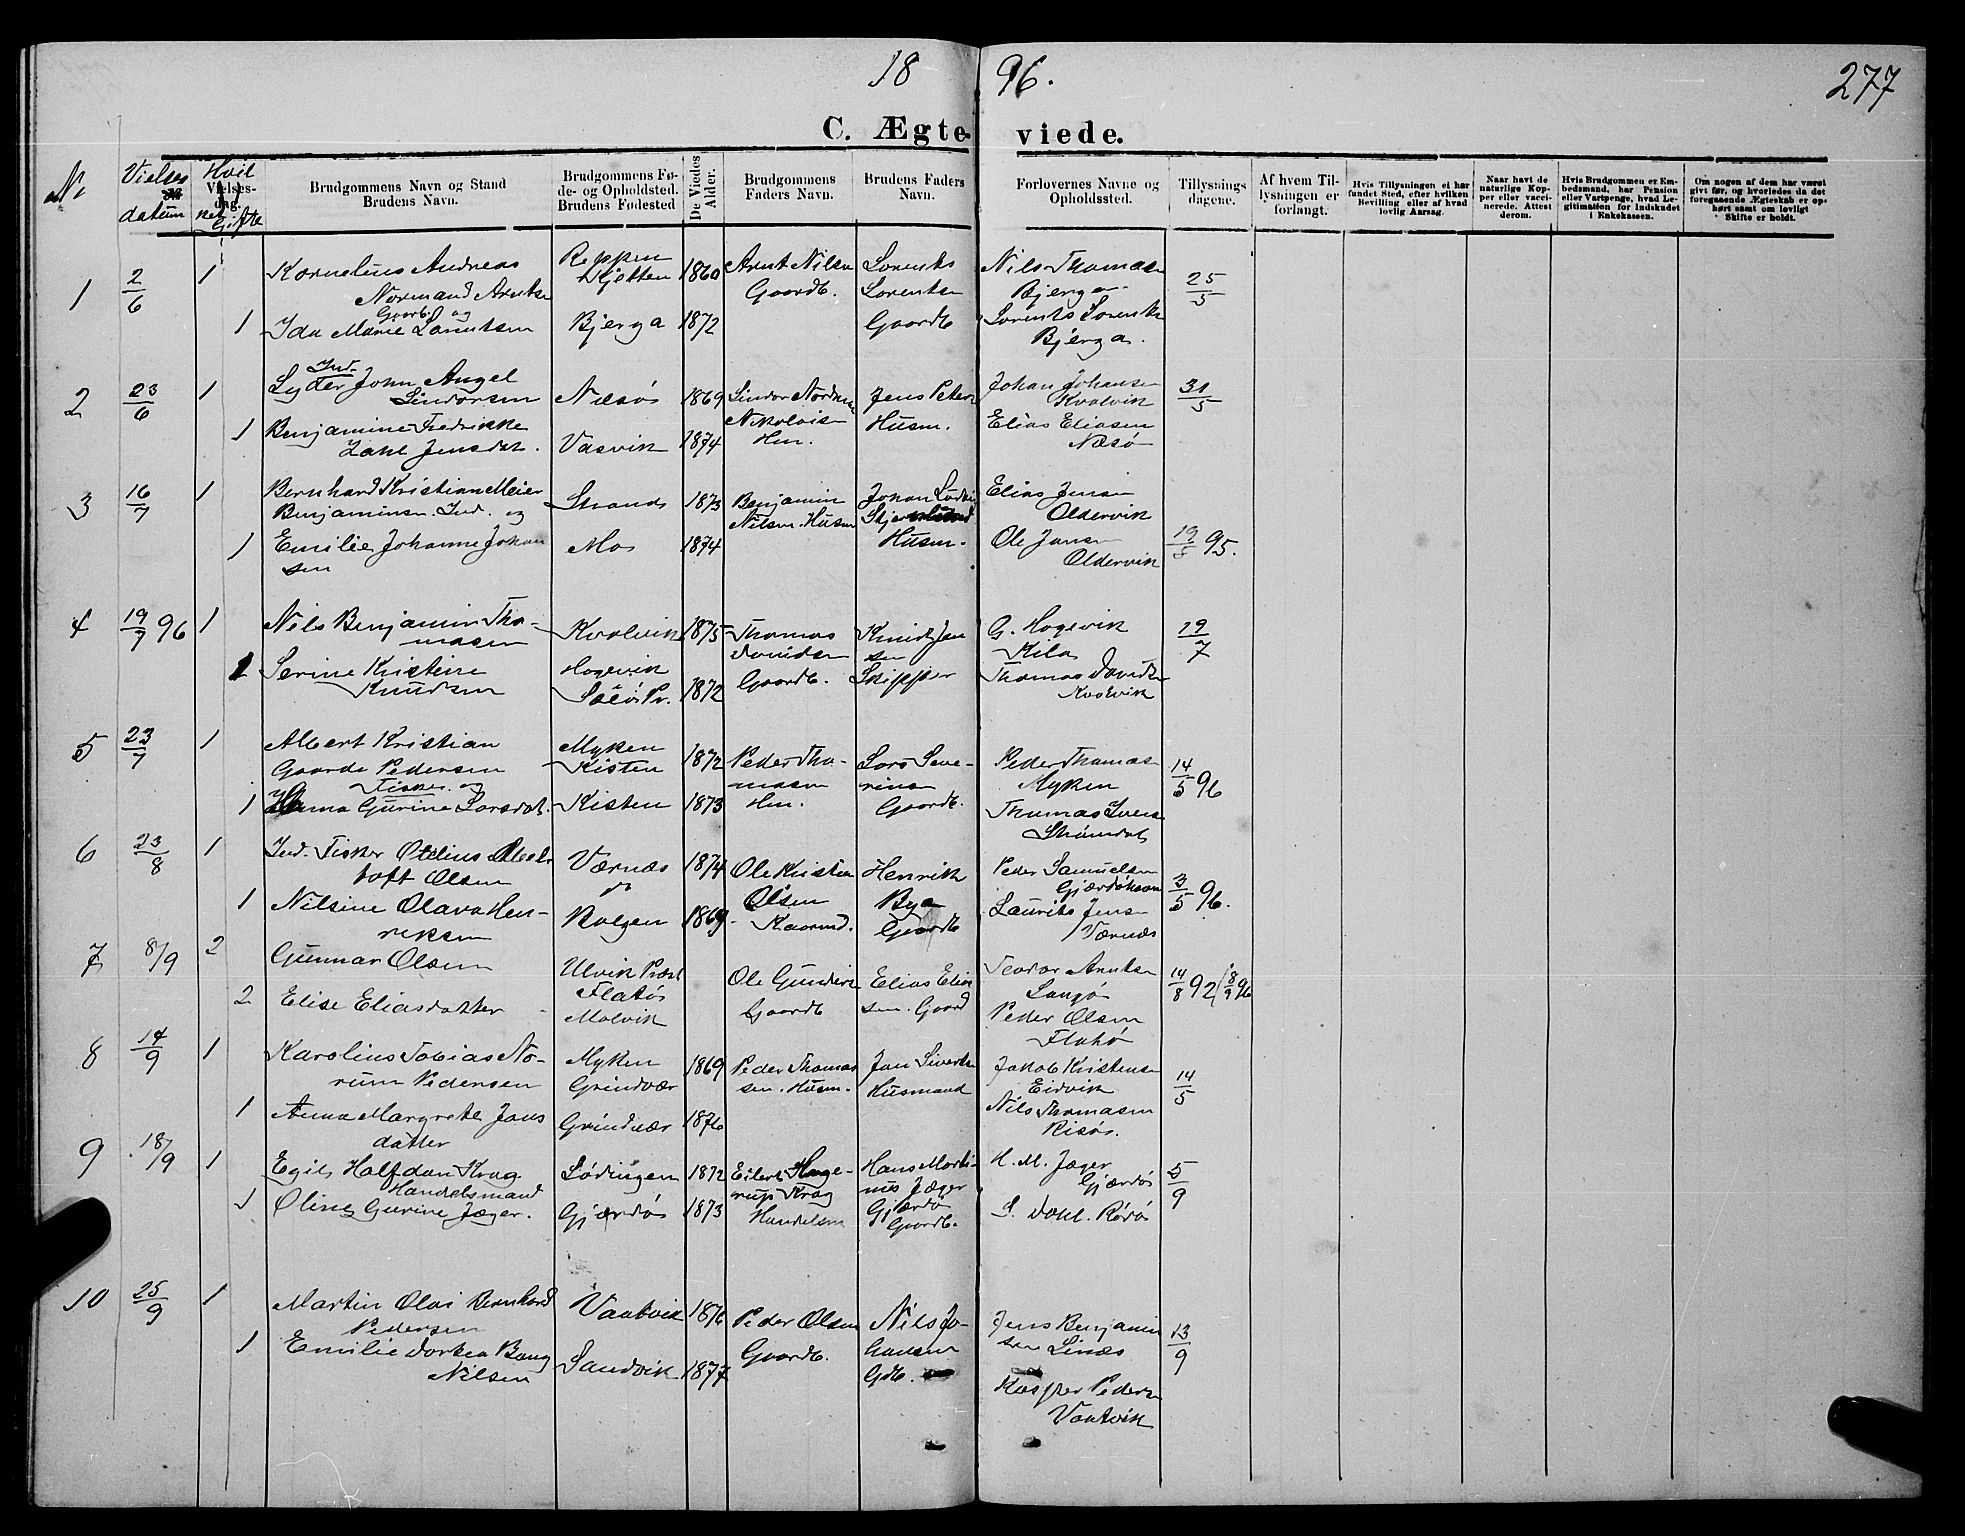 18 96.
277
C. Ægteviede.
Nr
Vielses datum
Hvilket Gifte
Vielses-dag.
Brudgommens Navn og Stand Brudens Navn.
Brudgommens Føde- og Opholdsted. Brudens Fødested
De Viedes Alder.
Brudgommens Faders Navn.
Brudens Faders Navn.
Forlovernes Navne og Opholdssted.
Tillysnings dagene.
Af hvem Tillysningen er forlangt.
Hvis Tillysningen ei har fundet Sted, efter hvilken Bevilling eller af hvad lovlig Aarsag.
Naar havt de naturlige Kopper eller vaccinerede. Attest derom.
Hvis Brudgommen er Embedsmand, har Pension eller Vartpenge, hvad Legitimation for Indskudet i Enkekassen.
Om nogen af dem har været givt før, og hvorledes da det foregaaende Ægteskab er ophørt samt om lovligt Skifte er holdt.
1 2/6 1 Kornelius Andreas Normand Arntsen Gaardb. og
Reppen
1860 Arnt Nilsen Gaardb.
Lorents Lorentsen Gaardb
Nils Thomasen Bjerga.
25/5
1 Ida Marie Lorentsen Bjerga 1872
Lorents Lorentsen Bjerga.
2 23/6 1 Ind. Lyder John Angel Sindorsen
Næsø 1869
Sindor Nordmn Nikolaisen
Jens Petersen Husm.
Johan Johansen Kvalvik
31/5
1 Benjamine Fredrikke Zahl Jensdat.
Vasvik 1874
Elias Eliasen Næsø
3 16/7 1 Bernhard Kristian Meier Benjaminsen. Ind. og
Strand 1873
Benjamin Nilsen. Husm
Johan
Husm.
Elias Jensen Oldervik
1 Emilie Johanne Johansen
Mo 1874
Ole Jansen Oldervik
19/8 95.
4 19/7 96 1 Nils Benjamin Thomasen
Kvalvik 1875
Thomas Davidsen Gaardb.
Knudt Jensen Skipper
G. Hagevik Kila
19/7
1 Serine Kristine Knudsen
Hogevik
1872
Thomas Davidsen Kvalvik
5 23/7 1 Albert Kristian Gaarde Pedersen Fisker og
Myken Kisten 1872
Peder Thomasen
Lars Severinsen Gaardb.
Peder Thomasen Myken
14/5 96
1 Hanna Gurine Larsdat.
Kisten 1873
Thomas
Strømdal
6 23/8 1 Ind. Fisker Otelius Meeltoft Olsen
Værnæs 1874
Ole Kristian Olsen
Henrik
Gaardb
Peder Samuelsen Gjærdøhavn
3/5 96.
1 Nilsine Olava Henriksen
Bolgen 1869
Laurits Jensen Værnæs
7 8/9 2 Gunnar Olsen
Ulvik Præst Flatø
Ole Gundersen Gaardb
Elias Eliassen. Gaard
Teodor Arntsen Langø
14/8 92 (8/9 96
2 Elise Eliasdatter
Molvik
Peder Olsen Flatø
8 14/9 1 Karolius Tobias Norum Pedersen
Myken Grindvær 1869
Peder Thomassen. Husm.
Jan Sivertsen Husmand
Jakob Kristensen Eidvik
14/5
1 Anna Margrete Jansdatter
Grindvær 1876
Nils Thomasen Risø.
9 18/9 1 Egil Halfdan Krag Handelsmand
Lødingen 1872
Eilert Hagerup Krag Handelsm
Hans Martinus Jæger Gjærdø Gaardb.
H. M. Jæger Gjærdø
5/9
1 Oline Gurine Jæger.
Gjærdø 1873
S. Dahl. Rødø
10 25/9 1 Martin Olai Bernhard Pedersen
Vaatvik 1876
Peder Olsen Gaardb.
Nils Johansen Gdb.
Jens Benjaminsen Linæs
13/9
1 Emilie Dorkea Bang Nilsen
Sandvik 1877
Kasper Pedersen Vaatvik